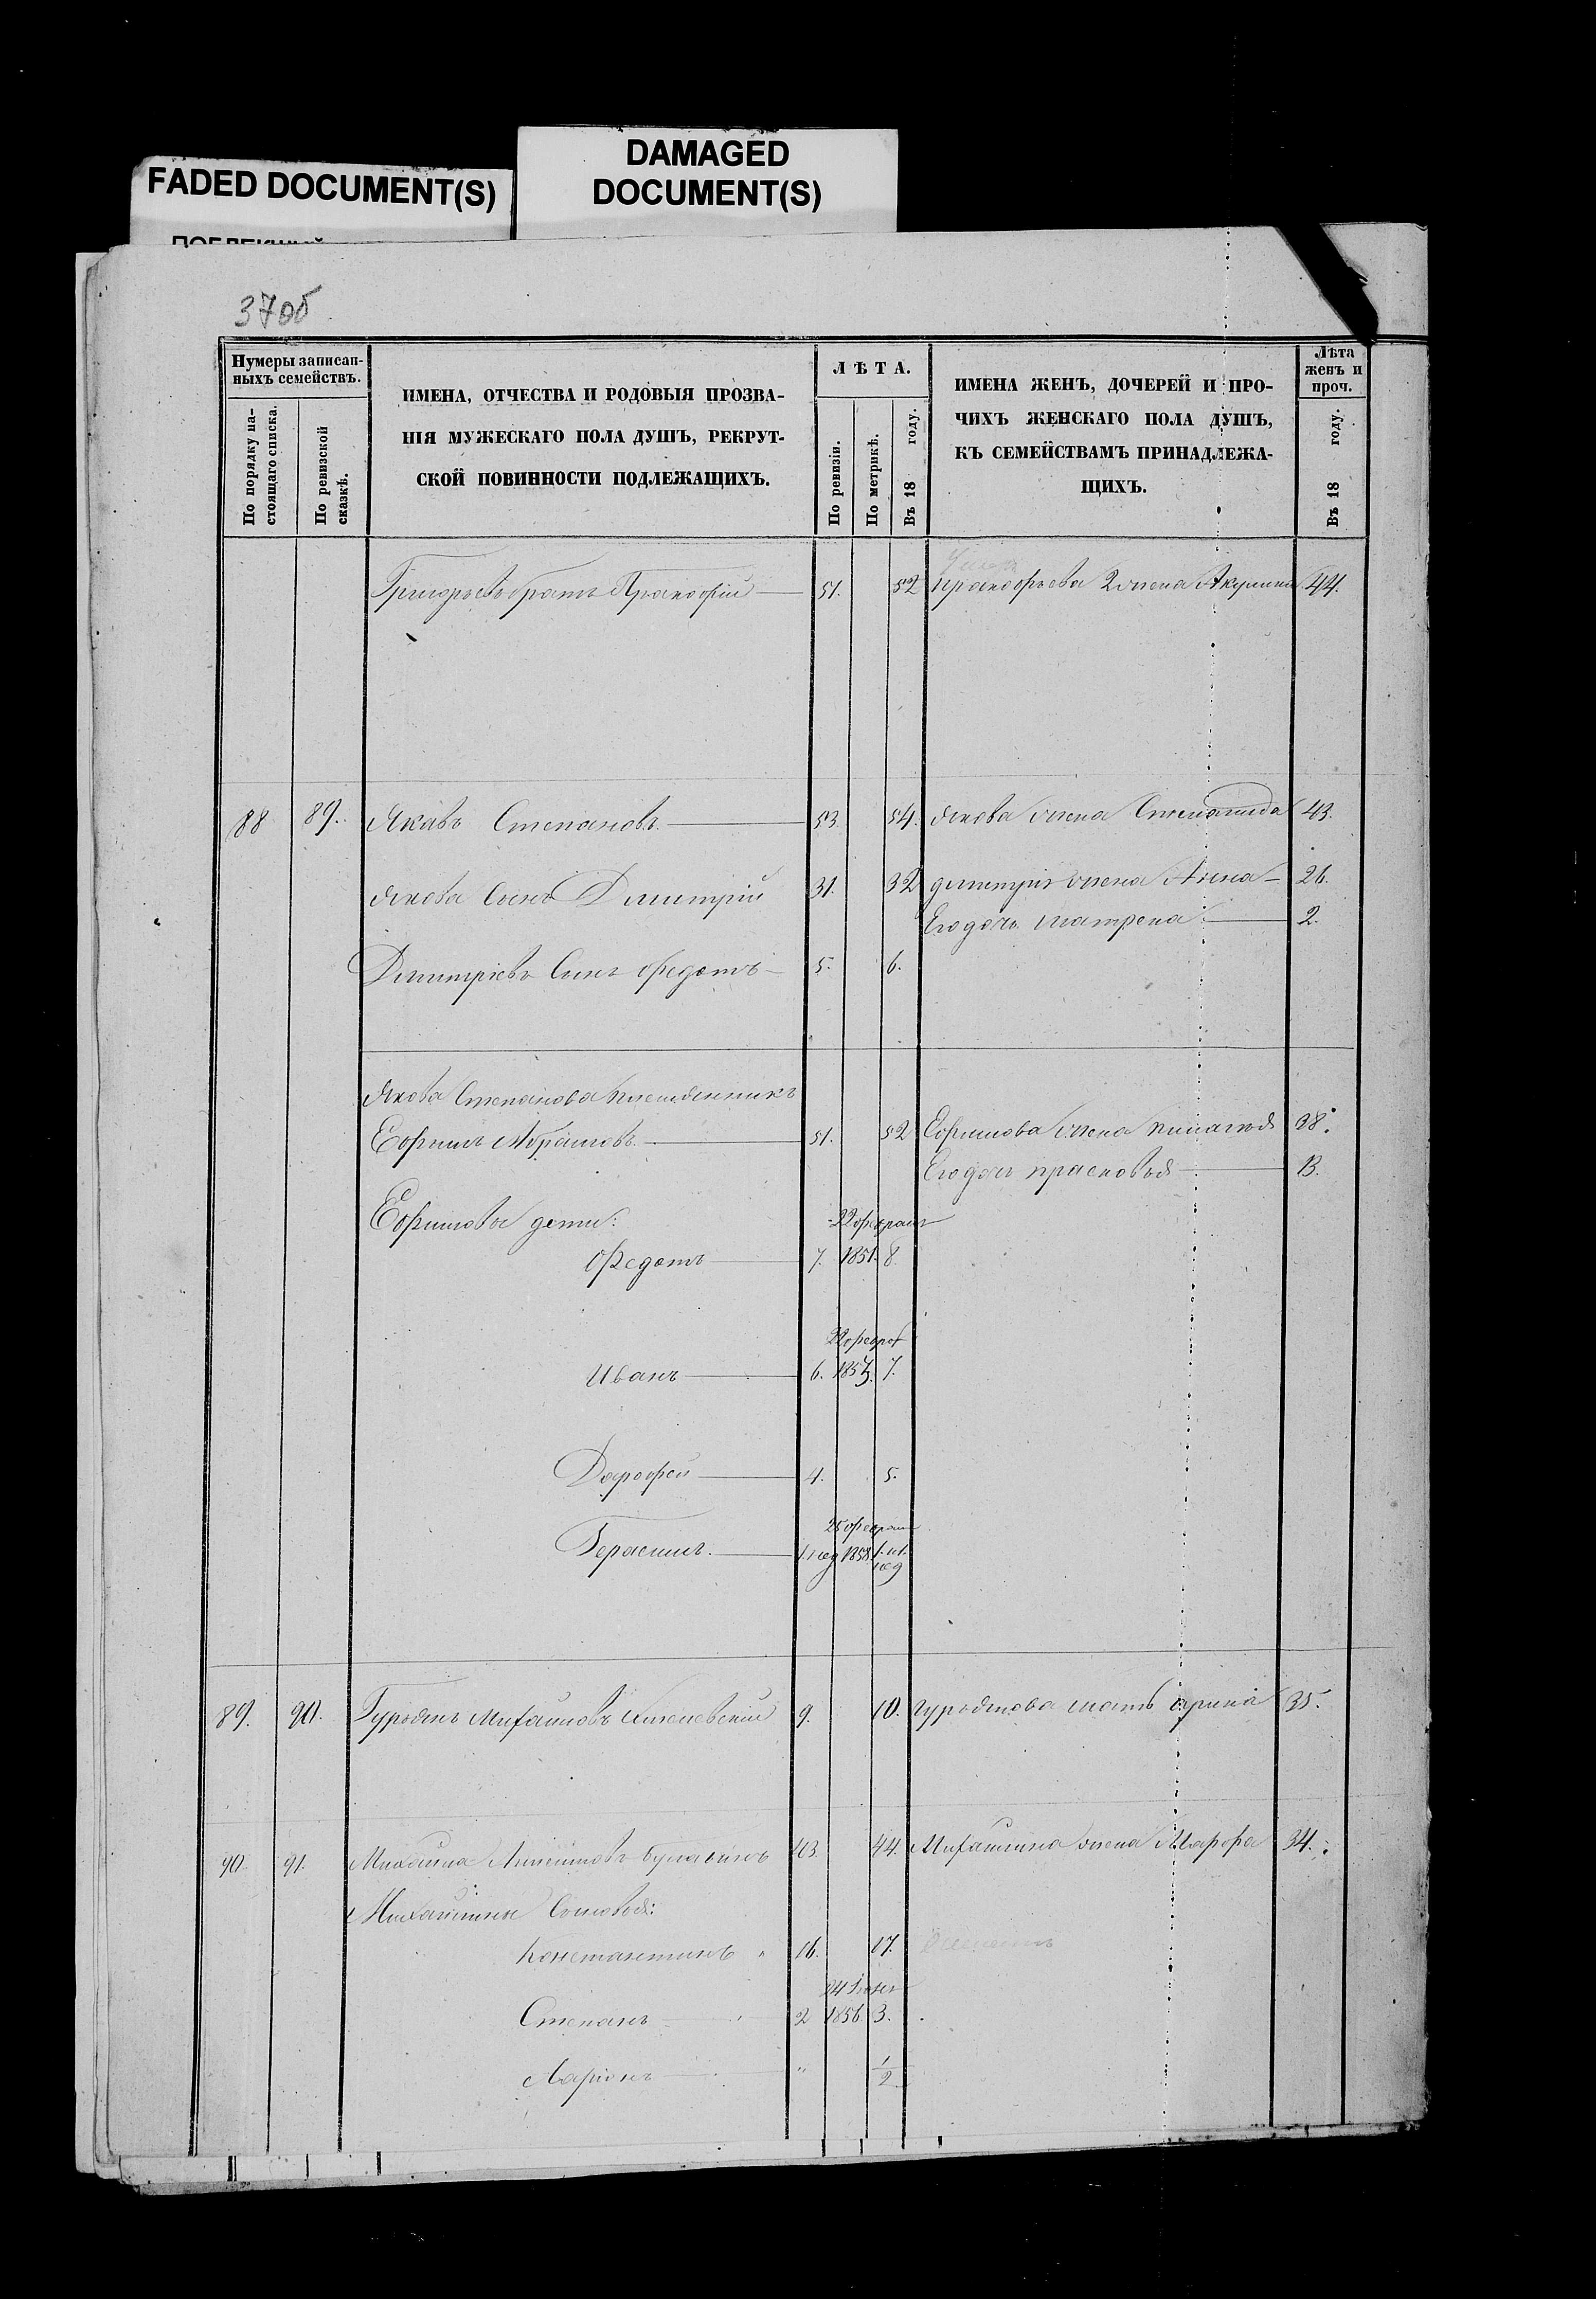 FADED DOCUMENT(S)
DAMAGED
DOCUMENT(S)
37об
Нумеры записан-
ныхъ семействъ.
По порядку на-
стоящаго списка.
По ревизской
сказкѣ.
ИМЕНА, ОТЧЕСТВА И РОДОВЫЯ ПРОЗВА-
НІЯ МУЖЕСКАГО ПОЛА ДУШЪ, РЕКРУТ-
СКОЙ ПОВИННОСТИ ПОДЛЕЖАЩИХЪ.
ЛѢТА.
По ревизіи.
По метрикѣ.
Въ 18 году.
ИМЕНА ЖЕНЪ, ДОЧЕРЕЙ И ПРО-
ЧИХЪ ЖЕНСКАГО ПОЛА ДУШЪ,
КЪ СЕМЕЙСТВАМЪ ПРИНАДЛЕЖА-
ЩИХЪ.
Лѣта
женъ и
проч.
Въ 18 году.
Григорьевъ братъ Прокофій 51. 52 Прокофьева 2 жена Акулина 44.
88 89. Яковъ Степановъ 53. 54. Якова жена Степанида 43.
Якова Сынъ Дмитрій 31. 32 Дмитрія жена Анна 26.
Его дочь Матрена 2.
Дмитріевъ Сынъ Федотъ 5. 6.
Якова Степанова племянникъ
Ефимъ Абрамовъ 51. 52 Ефимова жена Пилагея 38.
Его дочь прасковья 13.
Ефимовы дети:
22 февраля
Федотъ 7. 1851. 8.
22 февра
Иванъ 6. 7.
Дорофей 4. 5.
25 февраля
Герасимъ. 1 нед 1858. 1. нед
89. 90. Гурьянъ Михайловъ 9. 10. Гурьянова мать арина 35.
90. 91. Михайла 43. 44. Михайлина жена Марфа 34.
Михайлины Сыновья:
Константинъ 16. 17.
24
Степанъ 2 1856 3.
Ларіонъ " 1/2